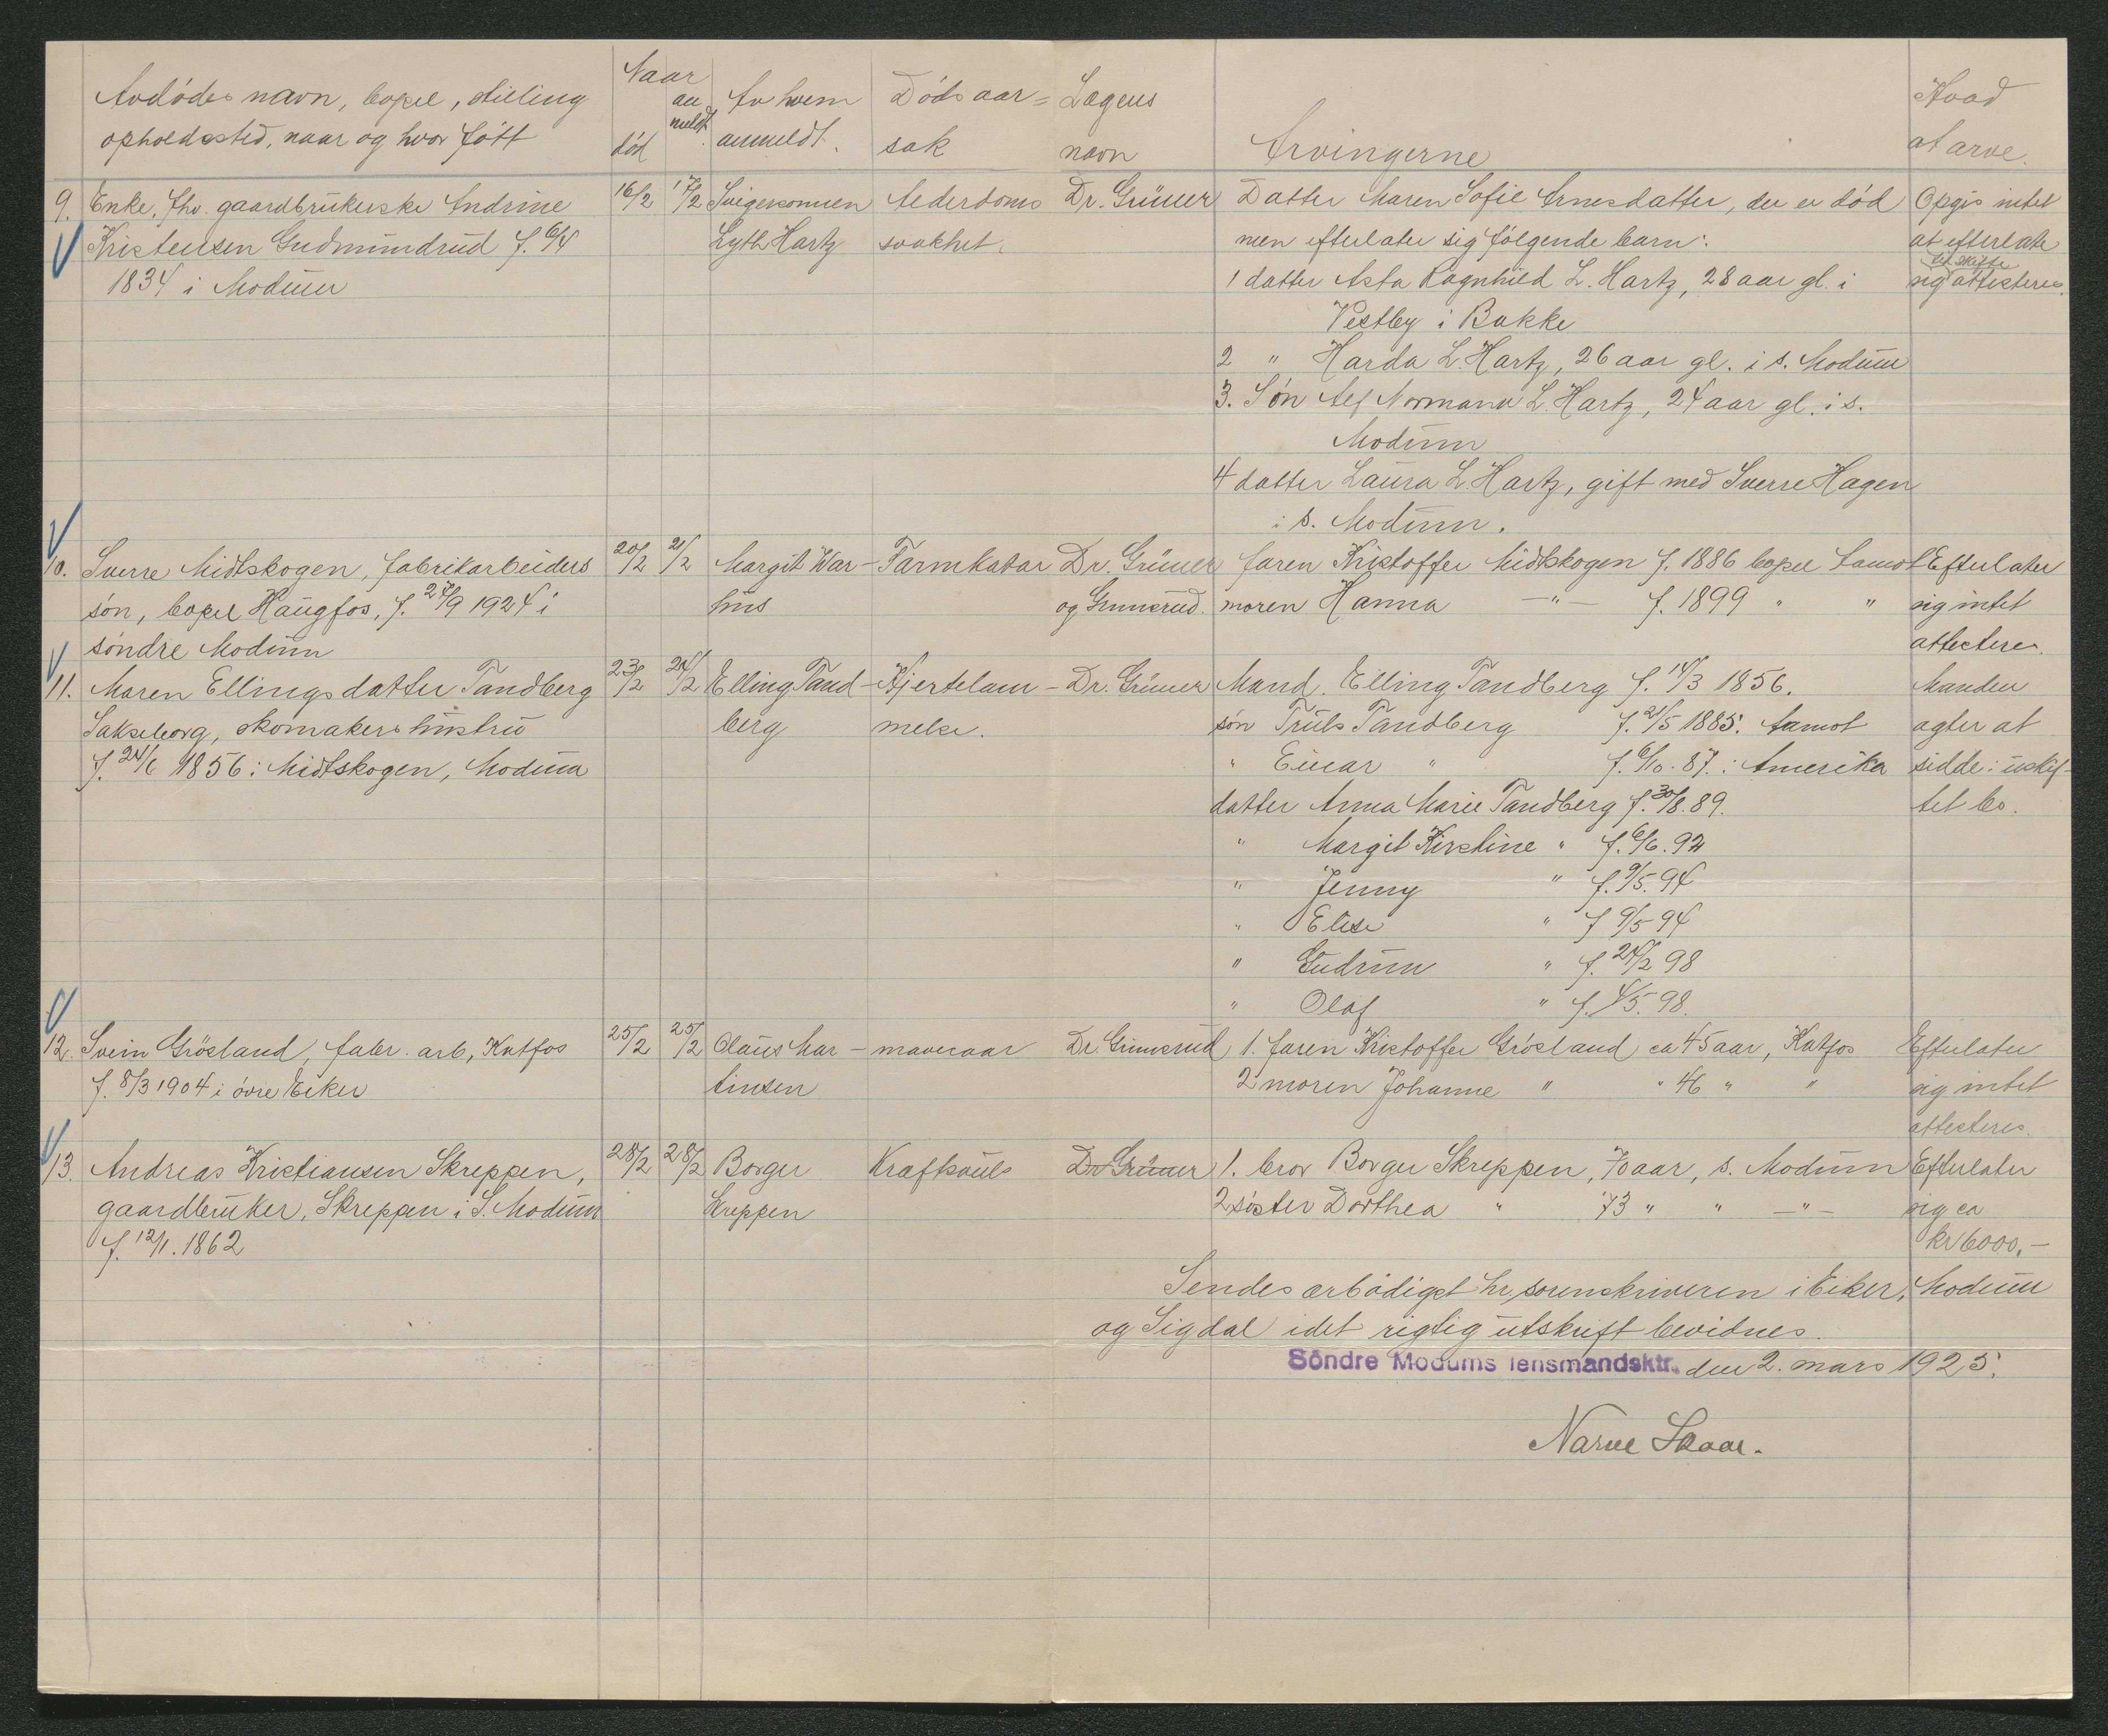 Avdødes navn, bopel, stilling
opholdssted, naar og hvor født
Naar
død
an
meldt
Av hvem
anmeldt.
Dødsaar=
sak
Lægens
navn
Arvingerne
Hvad
at arve.
9. Enke, fhv. gaardbrukerske Andrine
Kristensen Gudmundrud f. 6/4
1834 i Modum
16/2 17/2 Svigersønnen
Lyth Hartz
Alderdoms
svakhet.
Dr. Grüner
Datter Maren Sofie Arnesdatter, der er død
men efterlater sig følgende barn:
1 datter Asta Ragnhild L. Hartz, 28 aar gl. i
Vestby i Bakke
2 " Harda L. Hartz, 26 aar gl. i s. Modum
3. Søn Alf Normann L. Hartz, 24 aar gl. i s.
Modum
4 datter Laura L. Hartz, gift med Sverre Hagen
i s. Modum.
Opgis intet
at efterlate
til skifte
sig attesteres.
10. Sverre Midtskogen, fabrikarbeiders
søn, bopel Haugfos, f. 27/9 1924 i
søndre Modum
20/2 21/2 Margit War-
hus
Tarmkatar
Dr. Grüner
og Gunnerud.
faren Kristoffer Midtskogen f. 1886 bopel Aamot
moren Hanna -"- f. 1899 " "
Efterlater
sig intet
attesteres.
11. Maren Ellingsdatter Tandberg
Sakseborg, skomakers hustru
f. 24/6 1856 i Midtskogen, Modum
23/2 24/2 Elling Tand-
berg
Hjertelam-
melse.
Dr. Grüner
Mand. Elling Tandberg f. 14/3 1856.
søn Truls Tandberg f. 21/5 1885. Aamot
" Einar " f. 6/10. 87. i Amerika
datter Anna Marie Tandberg f. 30/8. 89.
" Margit Kirstine " f. 6/6. 92
" Jenny " f. 9/5. 94
" Elise " f 9/5 94
" Gudrun " f. 24/2 98
" Olaf " f. 4/5. 98.
Manden
agter at
sidde i uskif-
tet bo.
12. Svein Grøsland, fabr. arb, Katfos
f. 8/3 1904 i øvre Eiker
25/2 25/2 Olaus Mar-
tinsen
mavesaar
Dr. Gunnerud
1. faren Kristoffer Grøsland ca 45 aar, Katfos
2 moren Johanne " " 46 " "
Efterlater
sig intet
attesteres.
13. Andreas Kristiansen Skreppen,
gaardbruker, Skreppen i S. Modum
f. 12/1. 1862
28/2 28/2 Borger
Skreppen
Kræftsvuls
Dr Grüner
1. bror Borger Skreppen, 70 aar, s. Modum
2 søster Dorthea " 73 " " -"-
Efterlater
sig ca
kr 6000,-
Sendes ærbødigst hr. sorenskriveren i Eiker, Modum
og Sigdal idet rigtig utskrift bevidnes.
Söndre Modums lensmandsktr. den 2. mars 1925.
Narve Skaar.